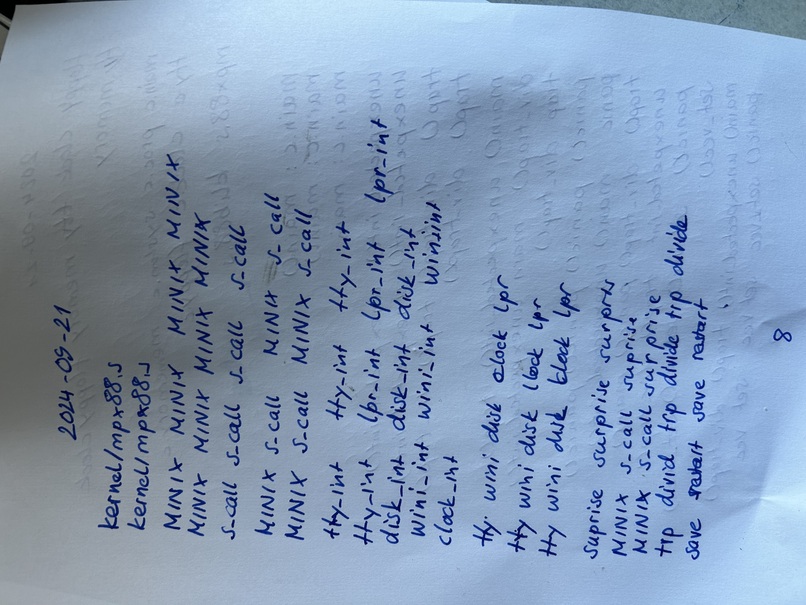 2024-09-21
kernel/mpx88.s
kernel/mpx88.s
MINIX MINIX MINIX MINIX
MINIX MINIX MINIX MINIX
s_call s_call s_call s_call
MINIX s_call MINIX s_call
MINIX s_call MINIX s_call
tty_int tty_int tty_int
tty_int lpr_int lpr_int lpr_int
disk_int disk_int disk_int
wini_int wini_int wini_int
clock_int
tty wini disk clock lpr
tty wini disk clock lpr
tty wini disk clock lpr
suprise surprise surpris
MINIX s_call suprise
MINIX s_call surprise
trp divid trp divide trp divide
save restart save restart
8